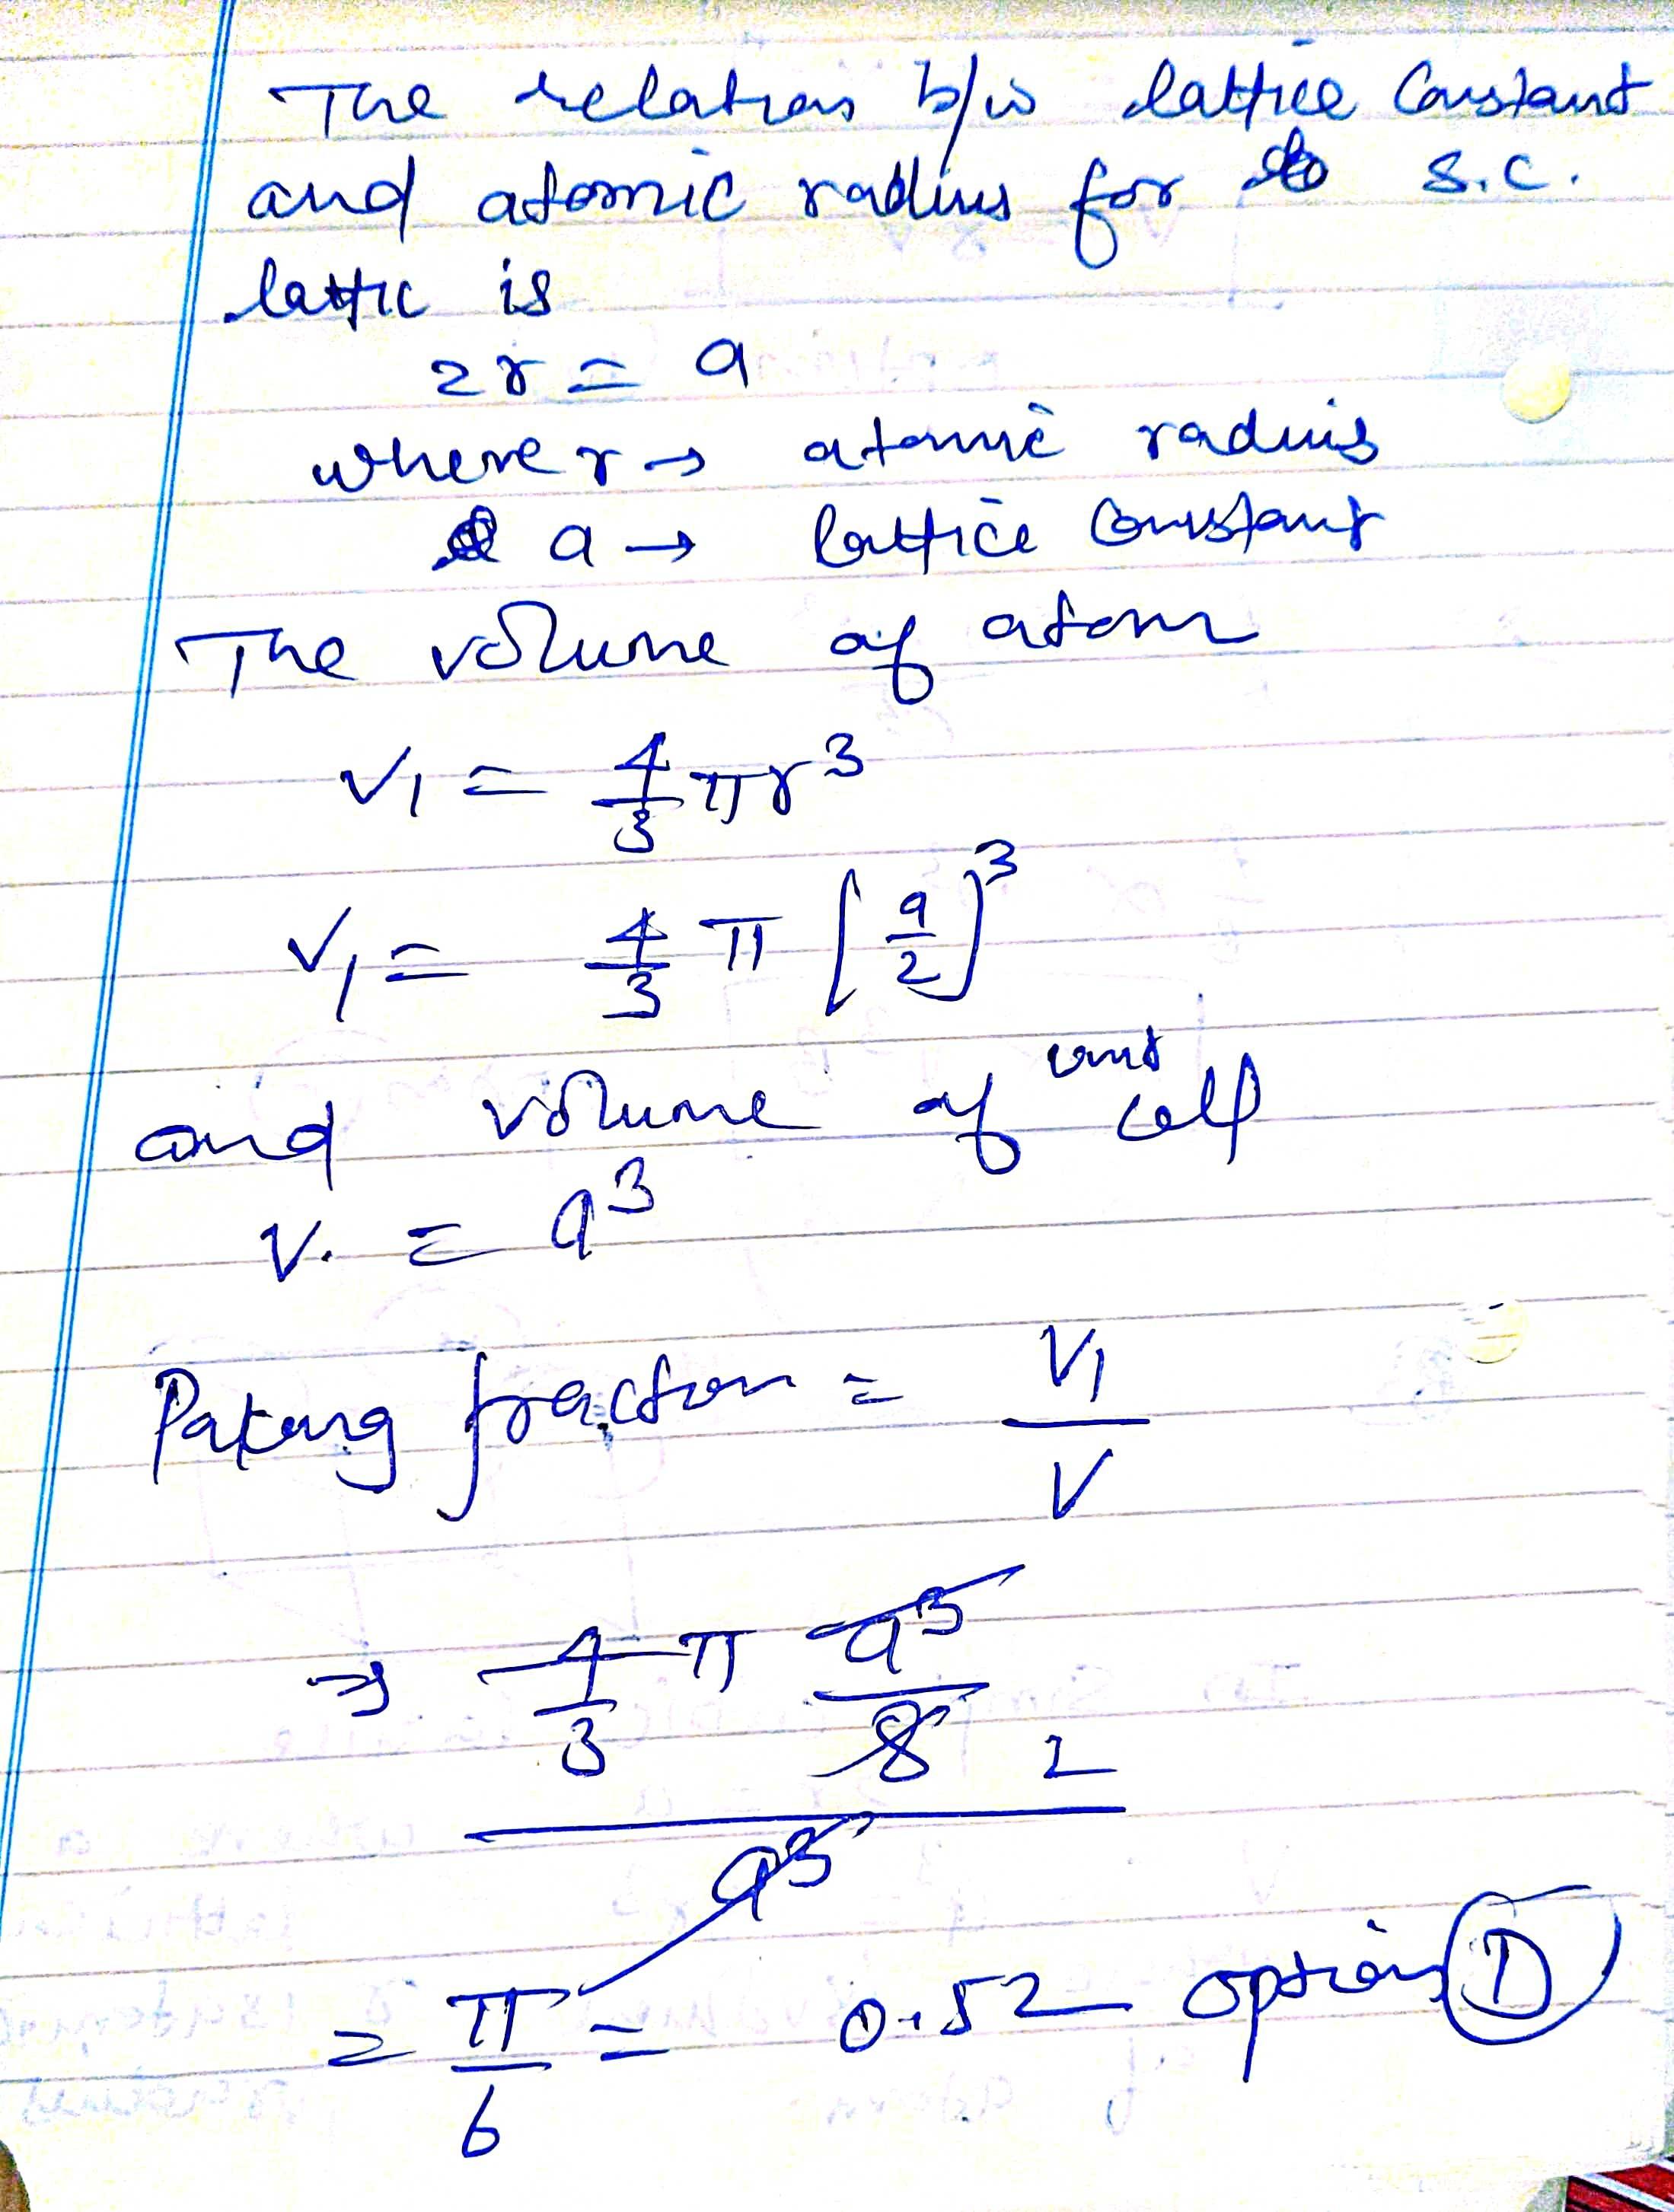 The relation b/w lattice Constant
and atomic radius for s.c.
lattic is
2r = a
where r → atomic radius
a → lattice Constant
The volume of atom
V1 = 4/3 πr³
V1 = 4/3 π [a/2]³
and volume of unit cell
V. = a³
Paking fraction = V1/V
⇒ 4/3 π a³/8 2
a³
= π/6 = 0.52 option D